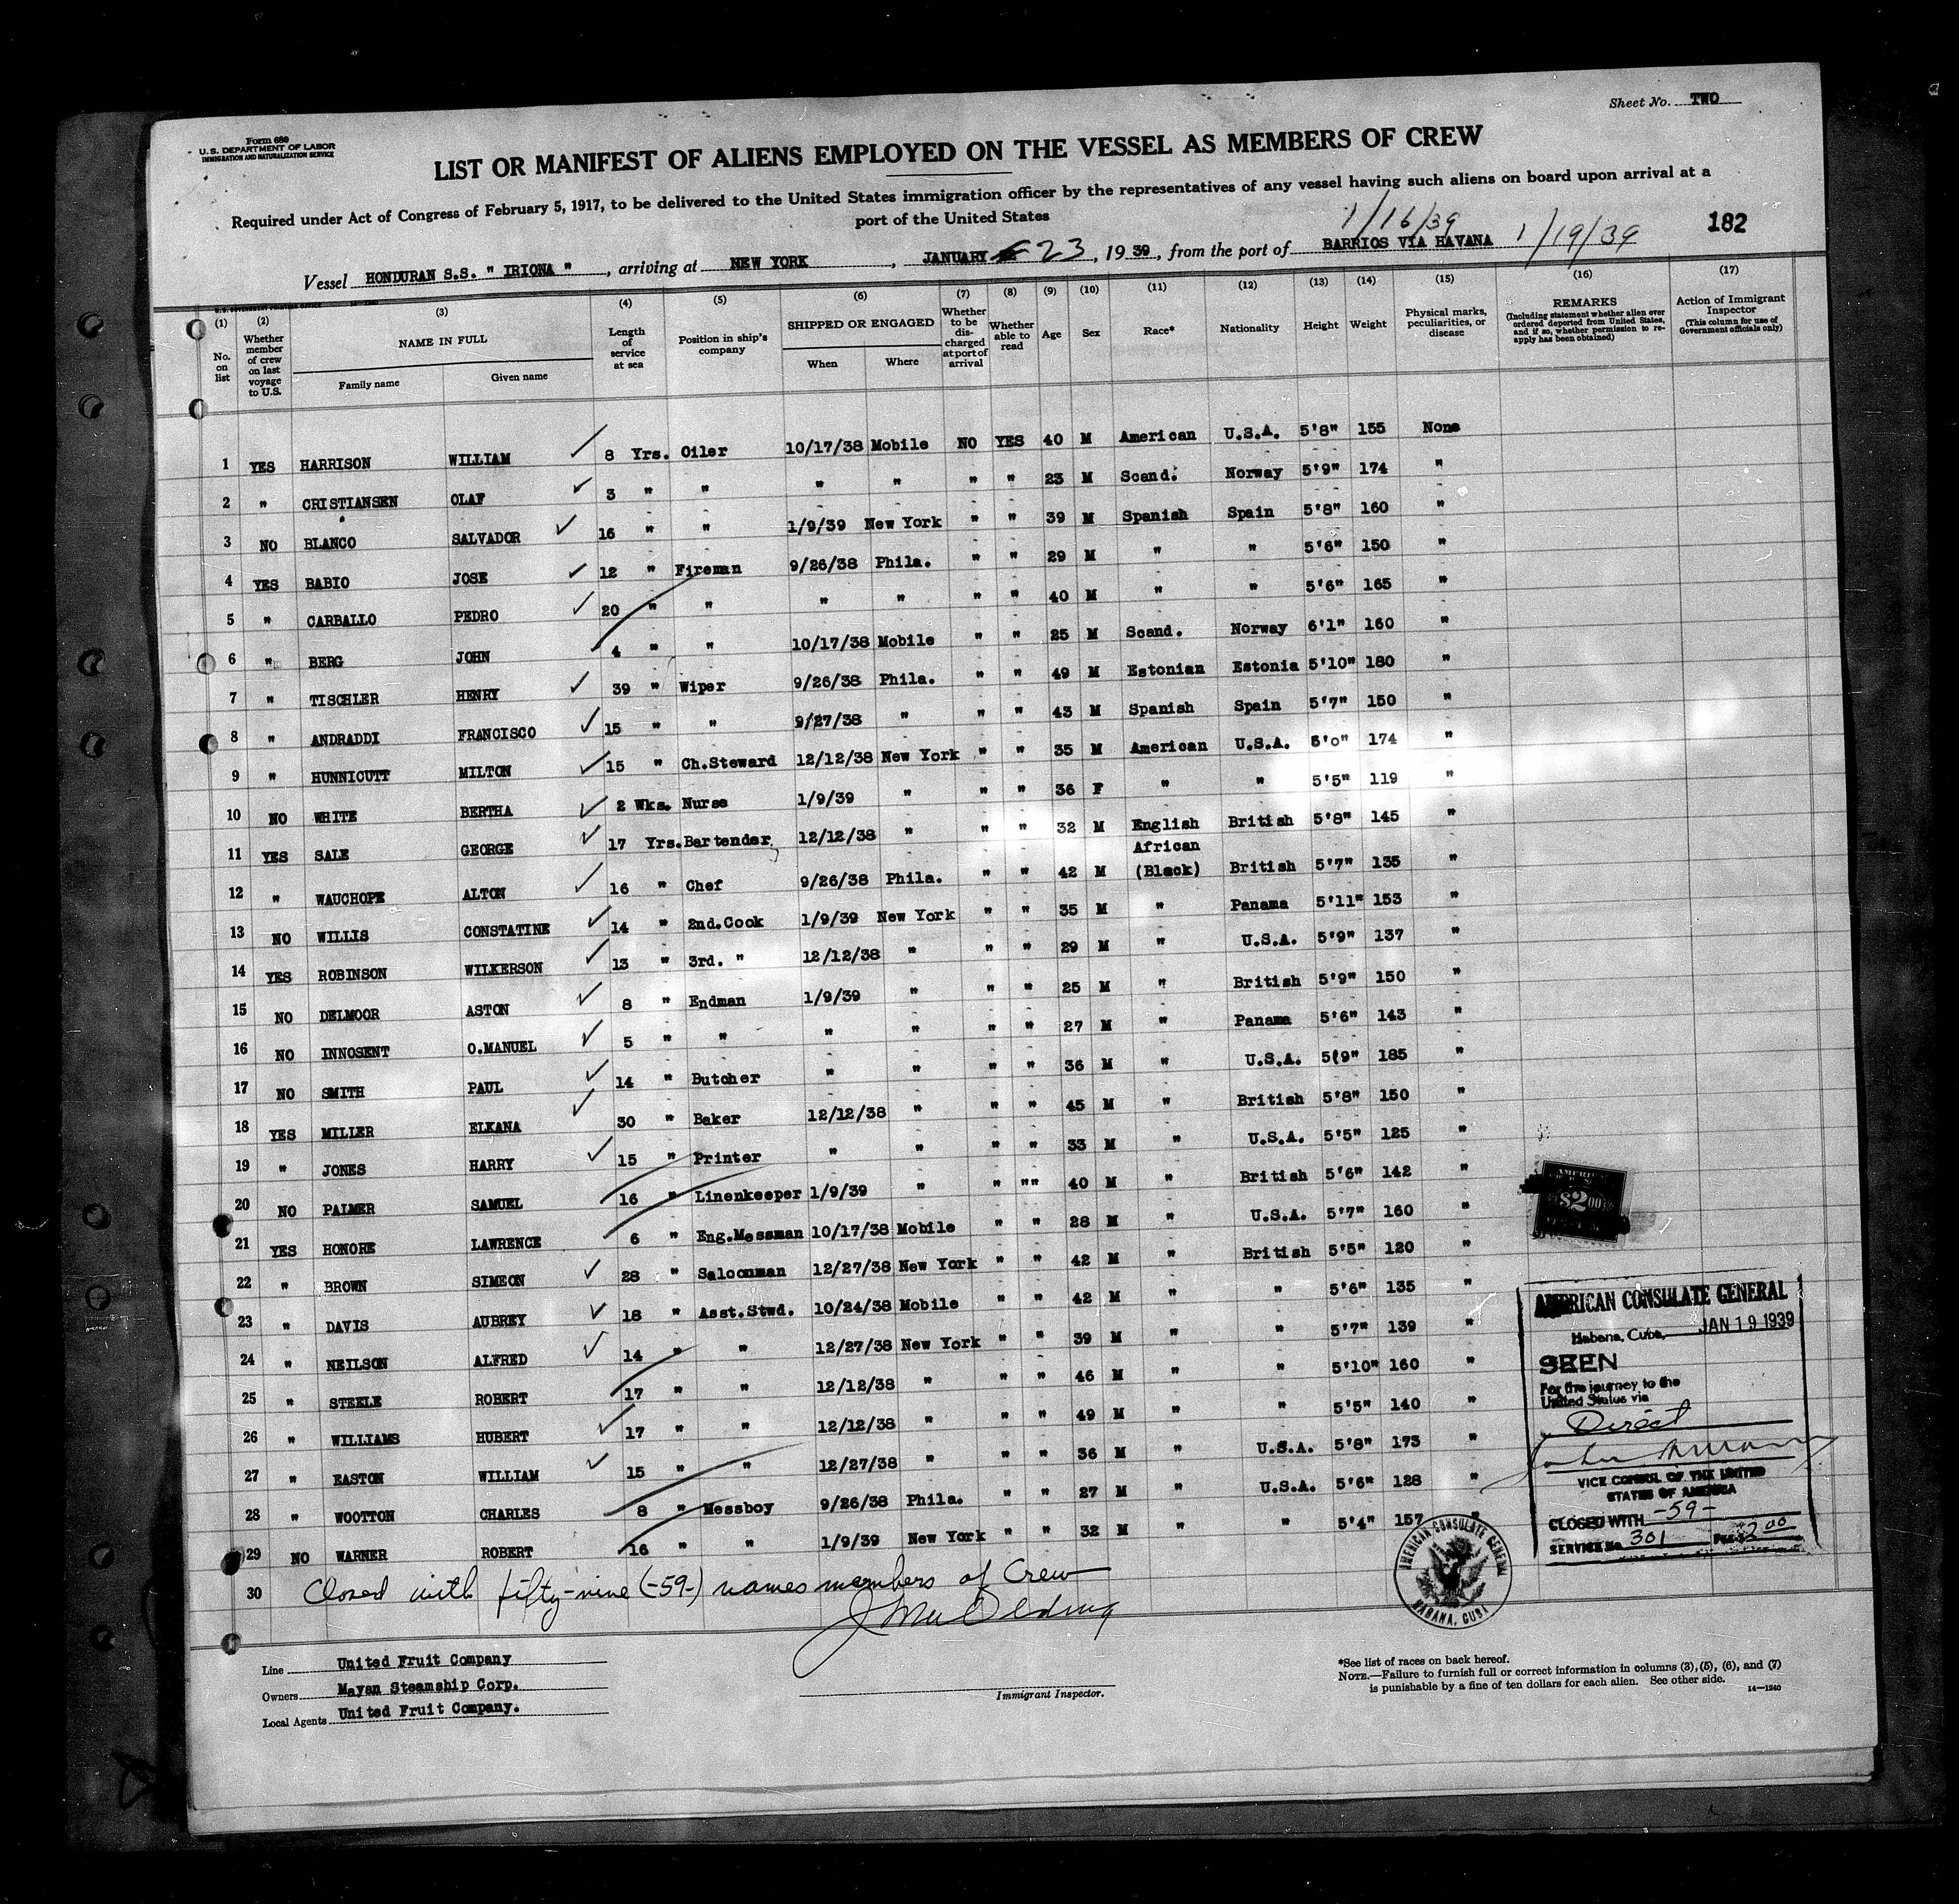 Sheet No. TWO
Form 680
U.S. DEPARTMENT OF LABOR
IMMIGRATION AND NATURALIZATION SERVICE
LIST OR MANIFEST OF ALIENS EMPLOYED ON THE VESSEL AS MEMBERS OF CREW
Required under Act of Congress of February 5, 1917, to be delivered to the United States immigration officer by the representatives of any vessel having such aliens on board upon arrival at a
port of the United States
1/16/39
1/19/39
182
Vessel HONDURAN S.S. " IRIONA ", arriving at NEW YORK, JANUARY 23, 1939, from the port of BARRIOS VIA HAVANA
(1) (2) (3) (4) (5) (6) (7) (8) (9) (10) (11) (12) (13) (14) (15) (16) (17)
No. on list
Whether member of crew on last voyage to U.S.
NAME IN FULL
Family name Given name
Length of service at sea
Position in ship's company
SHIPPED OR ENGAGED
When Where
Whether to be discharged at port of arrival
Whether able to read
Age Sex Race* Nationality Height Weight
Physical marks, peculiarities, or disease
REMARKS
(Including statement whether alien ever ordered deported from United States, and if so, whether permission to reapply has been obtained)
Action of Immigrant Inspector
(This column for use of Government officials only)
1 YES HARRISON WILLIAM 8 Yrs. Oiler 10/17/38 Mobile NO YES 40 M American U.S.A. 5'8" 155 None
2 " CRISTIANSEN OLAF 3 " " " " " " 23 M Scand. Norway 5'9" 174 "
3 NO BLANCO SALVADOR 16 " " 1/9/39 New York " " 39 M Spanish Spain 5'8" 160 "
4 YES BABIO JOSE 12 " Fireman 9/26/38 Phila. " " 29 M " " 5'6" 150 "
5 " CARBALLO PEDRO 20 " " " " " " 40 M " " 5'6" 165 "
6 " BERG JOHN 4 " " 10/17/38 Mobile " " 25 M Scand. Norway 6'1" 160 "
7 " TISCHLER HENRY 39 " Wiper 9/26/38 Phila. " " 49 M Estonian Estonia 5'10" 180 "
8 " ANDRADDI FRANCISCO 15 " " 9/27/38 " " " 43 M Spanish Spain 5'7" 150 "
9 " HUNNICUTT MILTON 15 " Ch.Steward 12/12/38 New York " " 35 M American U.S.A. 6'0" 174 "
10 NO WHITE BERTHA 2 Wks. Nurse 1/9/39 " " " 36 F " " 5'5" 119 "
11 YES SALE GEORGE 17 Yrs. Bartender 12/12/38 " " " 32 M English British 5'8" 145 "
12 " WAUCHOPE ALTON 16 " Chef 9/26/38 Phila. " " 42 M African (Black) British 5'7" 135 "
13 NO WILLIS CONSTATINE 14 " 2nd.Cook 1/9/39 New York " " 35 M " Panama 5'11" 153 "
14 YES ROBINSON WILKERSON 13 " 3rd. " 12/12/38 " " " 29 M " U.S.A. 5'9" 137 "
15 NO DELMOOR ASTON 8 " Endman 1/9/39 " " " 25 M " British 5'9" 150 "
16 NO INNOSENT O.MANUEL 5 " " " " " " 27 M " Panama 5'6" 143 "
17 NO SMITH PAUL 14 " Butcher " " " " 36 M " U.S.A. 5(9" 185 "
18 YES MILLER ELKANA 30 " Baker 12/12/38 " " " 45 M " British 5'8" 150 "
19 " JONES HARRY 15 " Printer " " " " 33 M " U.S.A. 5'5" 125 "
20 NO PALMER SAMUEL 16 " Linenkeeper 1/9/39 " " "" 40 M " British 5'6" 142 "
21 YES HONORE LAWRENCE 6 " Eng.Messman 10/17/38 Mobile " " 28 M " U.S.A. 5'7" 160 "
22 " BROWN SIMEON 28 " Saloonman 12/27/38 New York " " 42 M " British 5'5" 120 "
23 " DAVIS AUBREY 18 " Asst.Stwd. 10/24/38 Mobile " " 42 M " " 5'6" 135 "
24 " NEILSON ALFRED 14 " " 12/27/38 New York " " 39 M " " 5'7" 139 "
25 " STEELE ROBERT 17 " " 12/12/38 " " " 46 M " " 5'10" 160 "
26 " WILLIAMS HUBERT 17 " " 12/12/38 " " " 49 M " " 5'5" 140 "
27 " EASTON WILLIAM 15 " " 12/27/38 " " " 36 M " U.S.A. 5'8" 173 "
28 " WOOTTON CHARLES 8 " Messboy 9/26/38 Phila. " " 27 M " U.S.A. 5'6" 128 "
29 NO WARNER ROBERT 16 " " 1/9/39 New York " " 32 M " " 5'4" 157 "
30 Closed with fifty-nine (-59-) names members of Crew
$2.00
AMERICAN CONSULATE GENERAL
Habana, Cuba, JAN 19 1939
SEEN
For the journey to the
United States via
Direct
VICE CONSUL OF THE UNITED
STATES OF AMERICA
CLOSED WITH -59-
SERVICE No. 301 Fee $2.00
AMERICAN CONSULATE GENERAL
HABANA, CUBA
Line United Fruit Company
Owners Mayan Steamship Corp.
Local Agents United Fruit Company.
Immigrant Inspector.
*See list of races on back hereof.
NOTE.—Failure to furnish full or correct information in columns (3), (5), (6), and (7)
is punishable by a fine of ten dollars for each alien. See other side.
14—1240